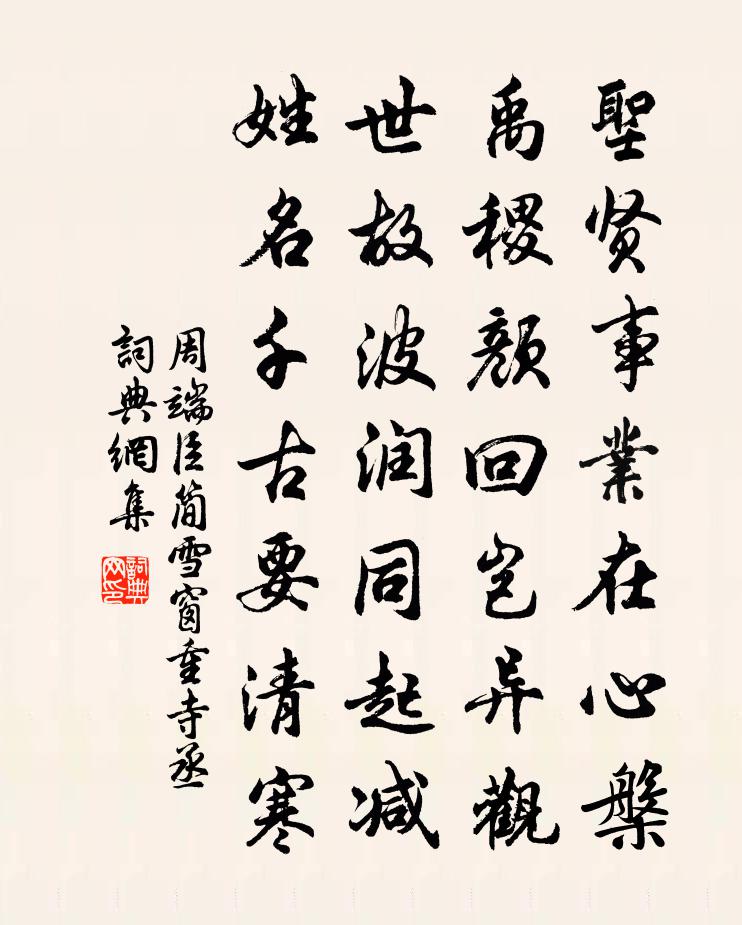 聖贤事業在心槃
禹稷颜回岂异觀
世故波润同起减
姓名千古要清寒
周端臣简雪窗童寺丞
詞典網集
詞典网印